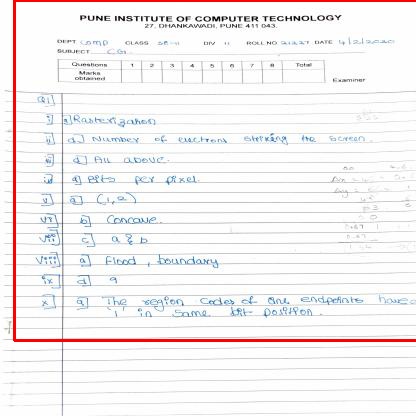 PUNE INSTITUTE OF COMPUTER TECHNOLOGY
27, DHANKAWADI, PUNE 411 043.
DEPT Comp CLASS SE-11 DIV 11 ROLL NO. 21227 DATE 4/2/2020
SUBJECT CG
Questions 1 2 3 4 5 6 7 8 Total
Marks obtained
Examiner
Q1]
i] a] Rasterization
ii] d] Number of electrons striking the screen.
iii] d] All above.
iv] a] bits per pixel.
v] a] (1,2)
vi] b] Concave.
vii] c] a & b
viii] a] Flood, boundary
ix] d] 9
x] a] The region codes of line endpoints have a
'1' in same bit position.